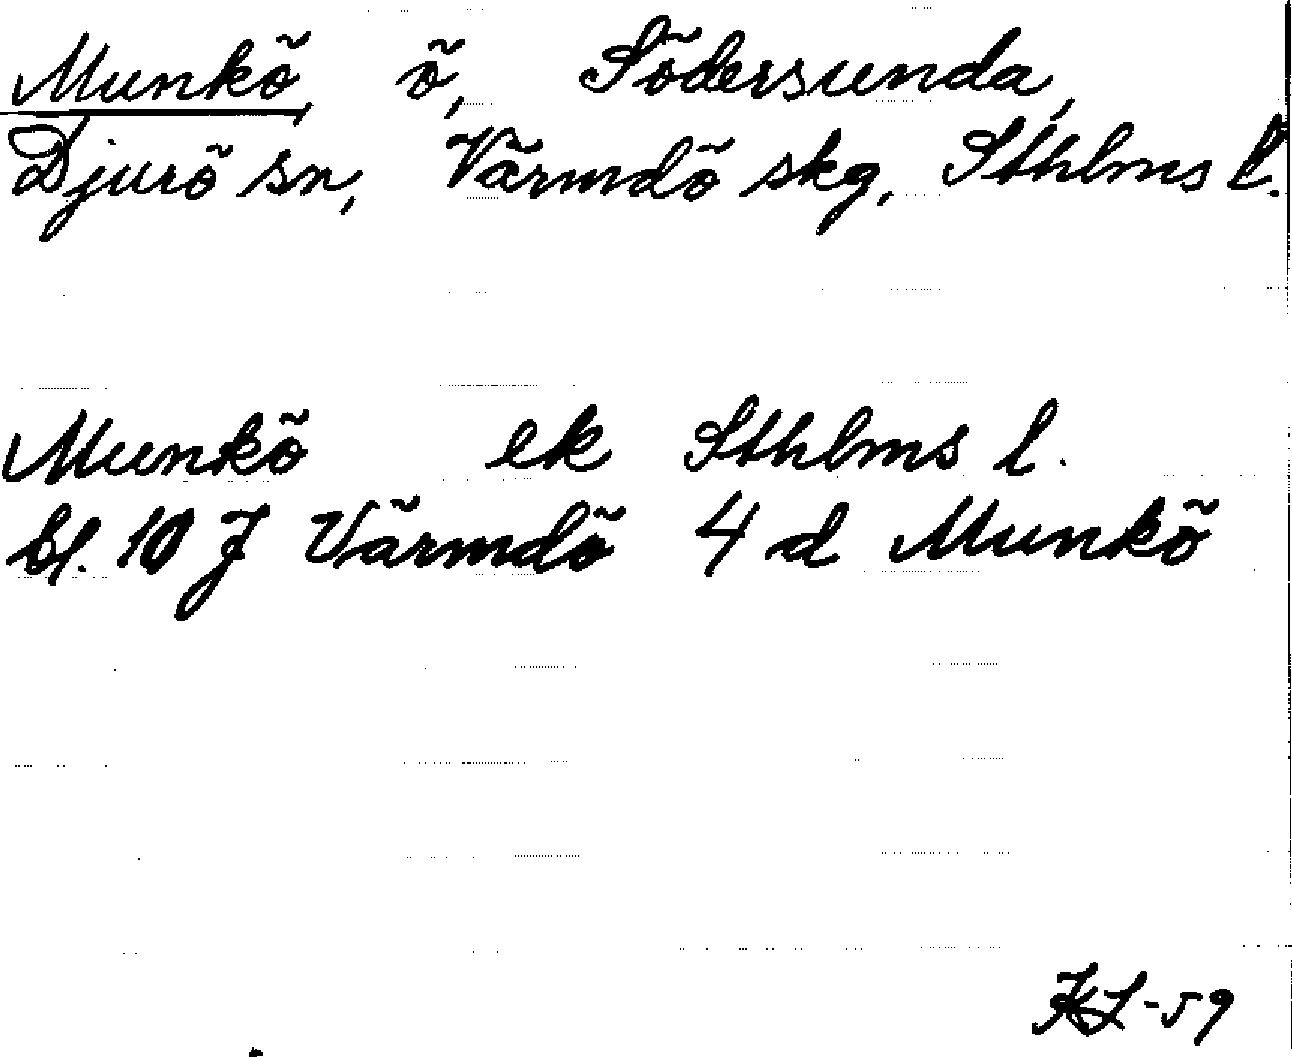 Munkö, ö, Södersunda,
Djurö sn, Värmdö skg, Sthlms l.
Munkö ek Sthlms l.
bl. 10 J Värmdö 4 d Munkö
KL-59